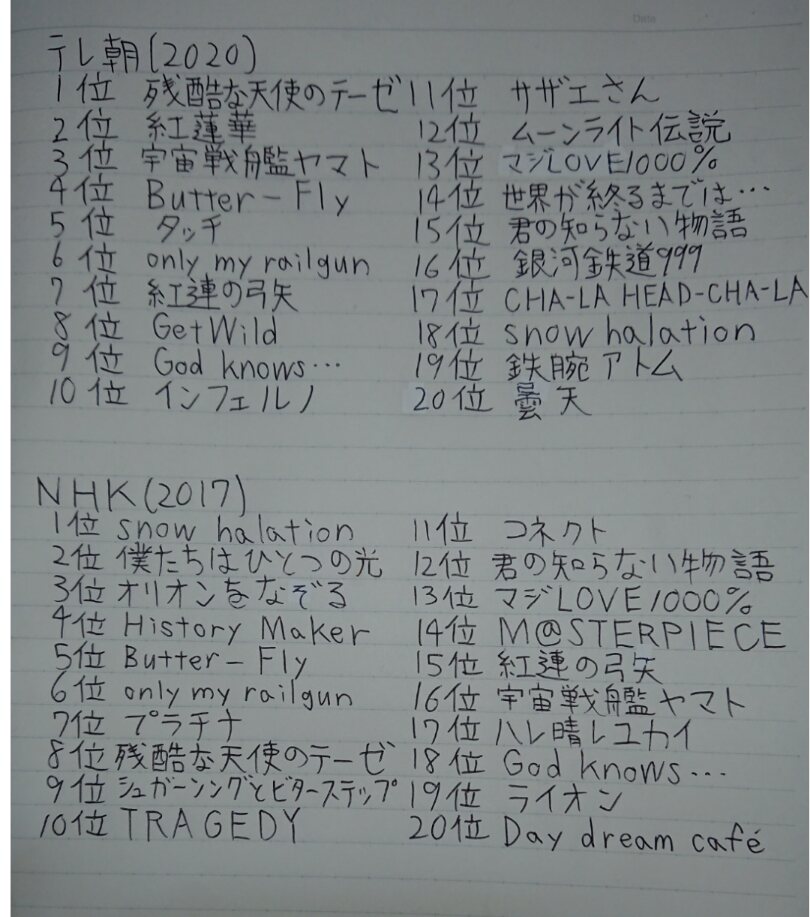 テレ朝(2020)
1位 残酷な天使のテーゼ
2位 紅蓮華
3位 宇宙戦艦ヤマト
4位 Butter-Fly
5位 タッチ
6位 only my railgun
7位 紅連の弓矢
8位 GetWild
9位 God knows…
10位 インフェルノ
11位 サザエさん
12位 ムーンライト伝説
13位 マジLOVE1000%
14位 世界が終るまでは…
15位 君の知らない物語
16位 銀河鉄道999
17位 CHA-LA HEAD-CHA-LA
18位 snow halation
19位 鉄腕アトム
20位 曇天
NHK(2017)
1位 snow halation
2位 僕たちはひとつの光
3位 オリオンをなぞる
4位 History Maker
5位 Butter-Fly
6位 only my railgun
7位 プラチナ
8位 残酷な天使のテーゼ
9位 シュガーソングとビターステップ
10位 TRAGEDY
11位 コネクト
12位 君の知らない物語
13位 マジLOVE1000%
14位 M@STERPIECE
15位 紅連の弓矢
16位 宇宙戦艦ヤマト
17位 ハレ晴レユカイ
18位 God knows…
19位 ライオン
20位 Day dream café